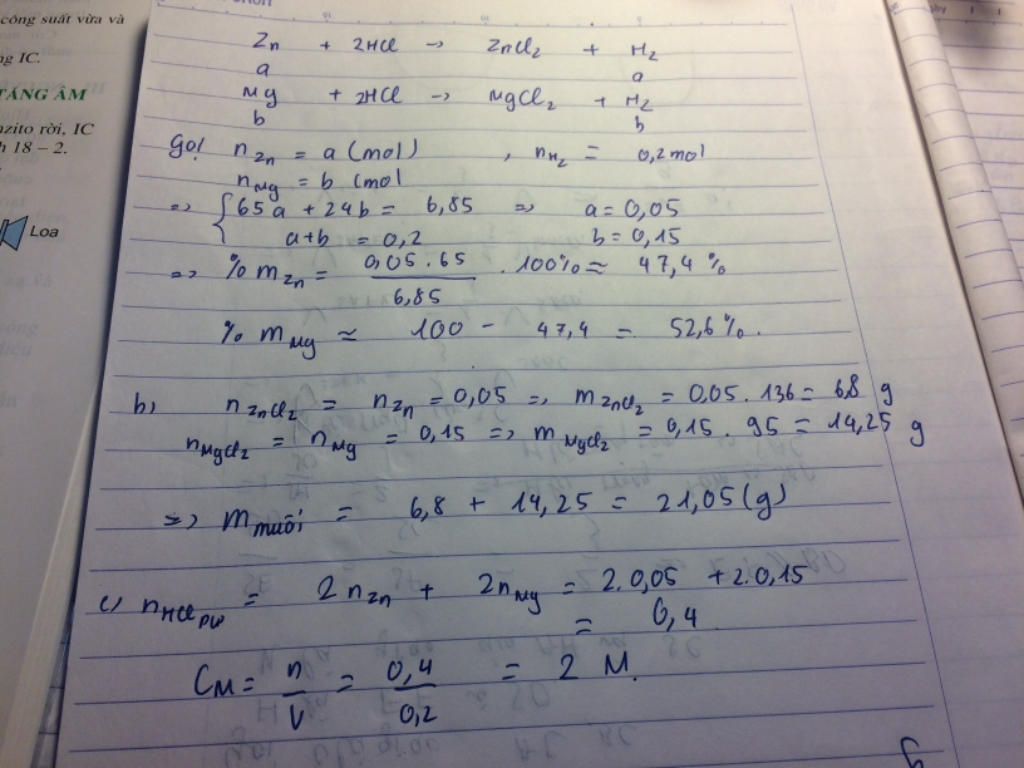 công suất vừa và
ng IC.
TĂNG ÂM
nzito rời, IC
h 18 – 2.
Loa
Zn + 2HCl → ZnCl2 + H2
a a
Mg + 2HCl → MgCl2 + H2
b b
Gọi nZn = a (mol) , nH2 = 0,2 mol
nMg = b (mol
=> { 65a + 24b = 6,85 => a = 0,05
a+b = 0,2 b = 0,15
=> % mZn = 0,05.65 / 6,85 . 100% ≈ 47,4 %
% mMg ≈ 100 - 47,4 = 52,6%.
b, nZnCl2 = nZn = 0,05 => mZnCl2 = 0,05 . 136 = 6,8 g
nMgCl2 = nMg = 0,15 => mMgCl2 = 0,15 . 95 = 14,25 g
=> mmuối = 6,8 + 14,25 = 21,05 (g)
c, nHCl pư = 2nZn + 2nMg = 2.0,05 + 2.0,15
= 0,4
CM = n / V = 0,4 / 0,2 = 2 M.